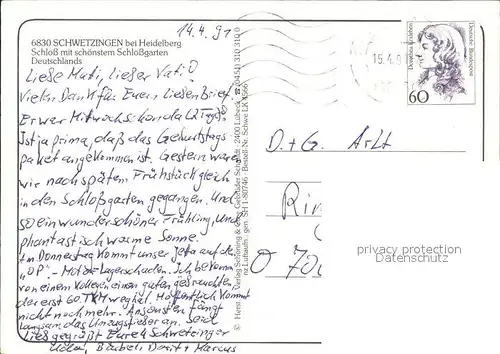 14.4.91
6830 SCHWETZINGEN bei Heidelberg
Schloß mit schönstem Schloßgarten
Deutschlands
Liebe Muti, lieber Vati!
Vielen Dank für Euren lieben Brief.
Er war Mittwoch schon da
Ist ja prima, daß das Geburtstags
paket angekommen ist. Gestern waren
wir nach spätem Frühstück gleich
in den Schloßgarten gegangen. Und
so ein wunderschöner Frühling, und
phantastisch warme Sonne.
Am Donnerstag kommt unser Jetta auf den
"OP" - Motor-Lagerschaden. Ich bekomm
von einem Kollegen einen guten gebrauchten
der erst 60 TKM weg hat. Hoffentlich kommt
nicht noch mehr. Ansonsten fängt
langsam das Umzugsfieber an. Seid
lieb gegrüßt Eure Schwetzinger
Bäbeli, Dorit + Marcus
© Horst
Verlag Schöning & Co + Gebrüder Schmidt · 2400 Lübeck
(0451) 31 03 10
Luftaufn. gen.
Bestell-Nr. Schwe
15.4.9
Deutsche Bundespost
60
D. + G. Arlt
Rin
O 70
privacy protection
Datenschutz